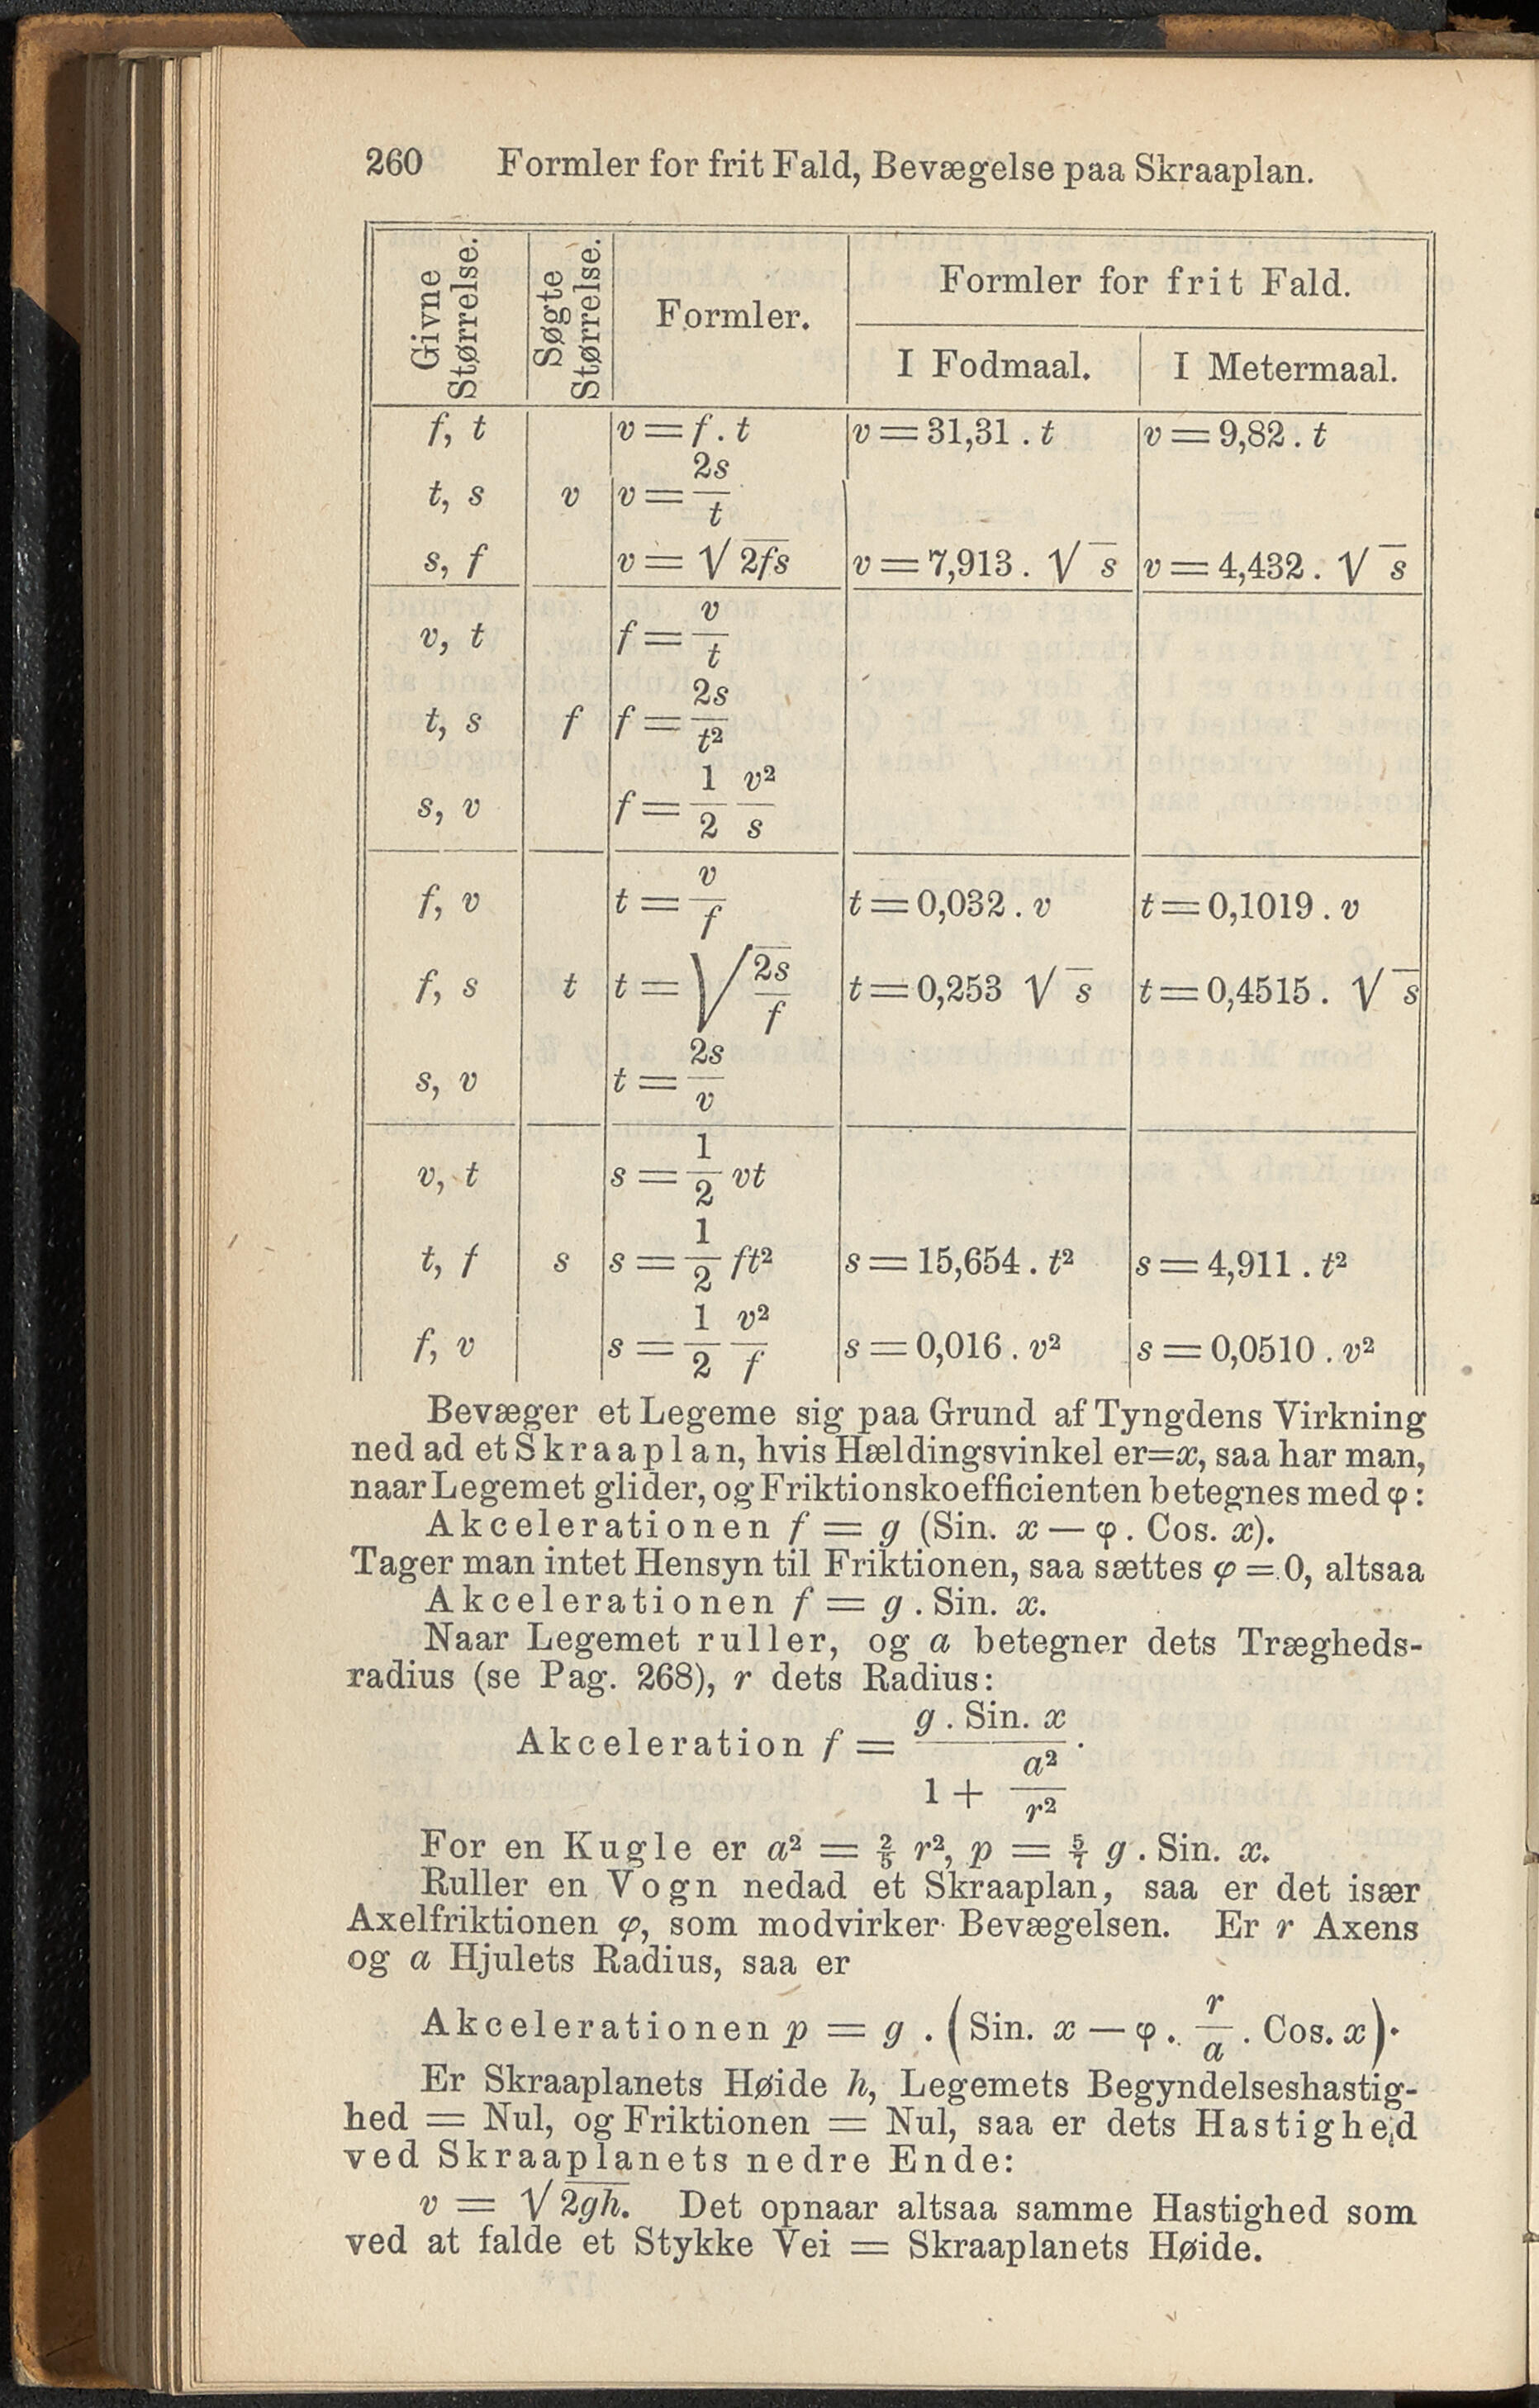 260 Formler for frit Fald, Bevægelse paa Skraaplan.
Givne Størrelse. | Søgte Størrelse. | Formler. | Formler for frit Fald.
I Fodmaal. | I Metermaal.
f, t | | v = f . t | v = 31,31 . t | v = 9,82 . t
t, s | v | v = 2s/t
s, f | | v = √2fs | v = 7,913 . √s | v = 4,432 . √s
v, t | | f = v/t
t, s | f | f = 2s/t²
s, v | | f = 1/2 v²/s
f, v | | t = v/f | t = 0,032 . v | t = 0,1019 . v
f, s | t | t = √(2s/f) | t = 0,253 √s | t = 0,4515 . √s
s, v | | t = 2s/v
v, t | | s = 1/2 vt
t, f | s | s = 1/2 ft² | s = 15,654 . t² | s = 4,911 . t²
f, v | | s = 1/2 v²/f | s = 0,016 . v² | s = 0,0510 . v²
Bevæger et Legeme sig paa Grund af Tyngdens Virkning
ned ad et Skraaplan, hvis Hældingsvinkel er=x, saa har man,
naar Legemet glider, og Friktionskoefficienten betegnes med φ:
Akcelerationen f = g (Sin. x — φ . Cos. x).
Tager man intet Hensyn til Friktionen, saa sættes φ = 0, altsaa
Akcelerationen f = g . Sin. x.
Naar Legemet ruller, og a betegner dets Trægheds-
radius (se Pag. 268), r dets Radius:
Akceleration f = g . Sin. x / (1 + a²/r²).
For en Kugle er a² = 2/5 r², p = 5/7 g . Sin. x.
Ruller en Vogn nedad et Skraaplan, saa er det især
Axelfriktionen φ, som modvirker Bevægelsen. Er r Axens
og a Hjulets Radius, saa er
Akcelerationen p = g . (Sin. x — φ . r/a . Cos. x).
Er Skraaplanets Høide h, Legemets Begyndelseshastig-
hed = Nul, og Friktionen = Nul, saa er dets Hastighed
ved Skraaplanets nedre Ende:
v = √2gh. Det opnaar altsaa samme Hastighed som
ved at falde et Stykke Vei = Skraaplanets Høide.